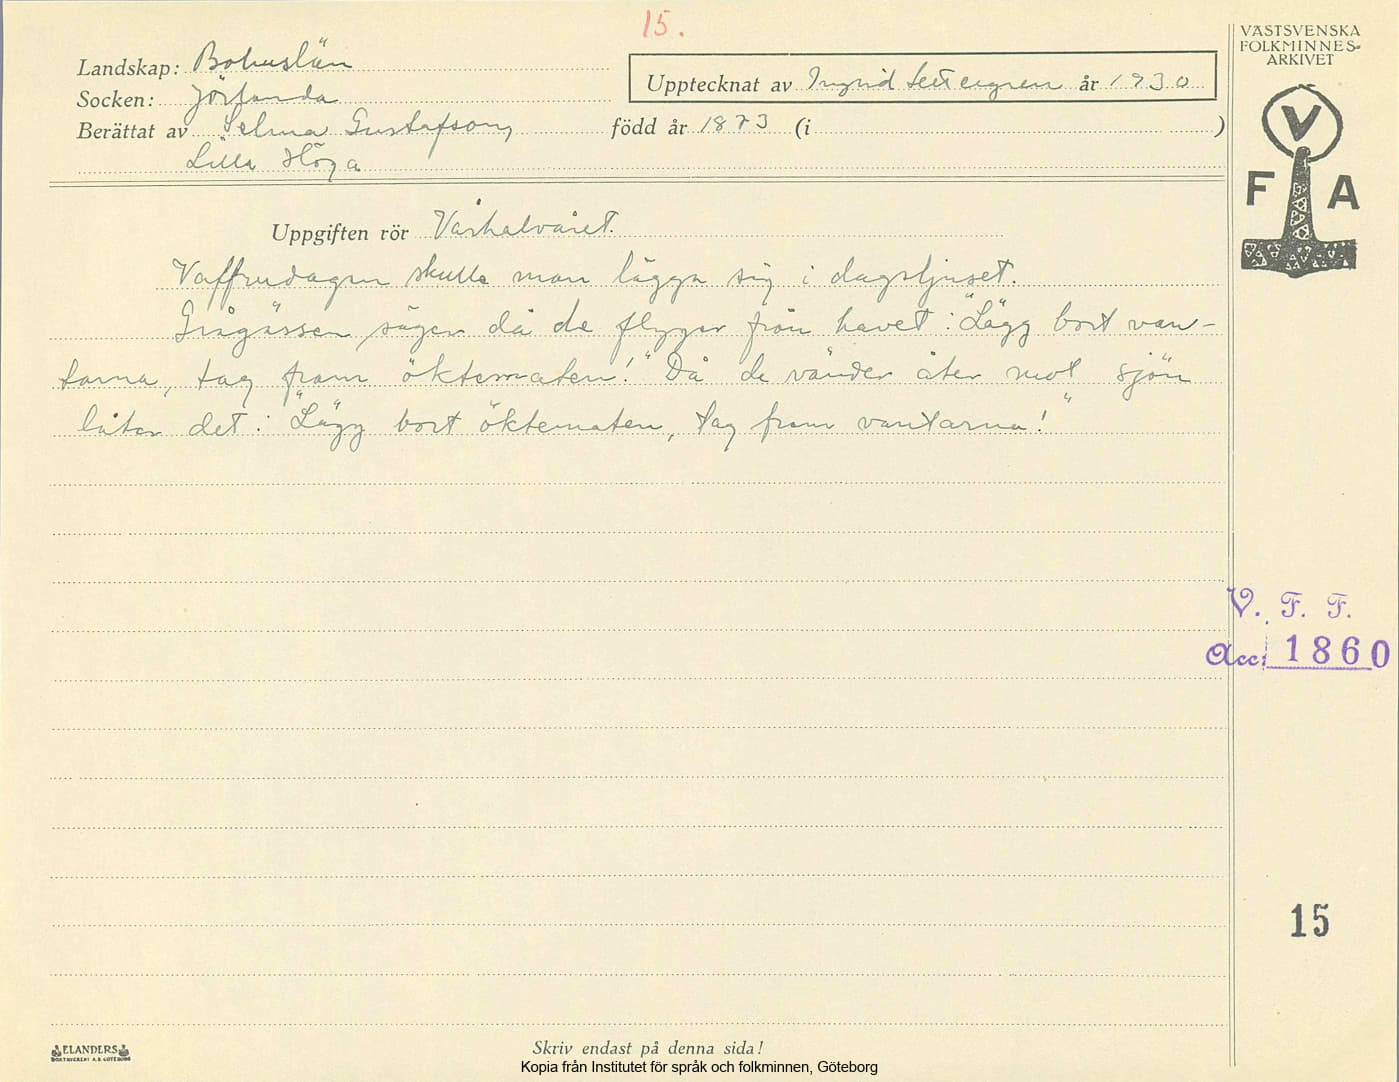 15.
VÄSTSVENSKA
FOLKMINNES-
ARKIVET
Landskap: Bohuslän
Upptecknat av Ingrid Settergren år 1930
Socken: Jörlanda
Berättat av Selma Gustafson, född år 1873 (i )
Lilla Höga
V
F A
Uppgiften rör Vårhalvåret.
Vaffrudagen skulle man lägga sig i dagsljuset.
Grågässen säger då de flyger från havet: "Lägg bort van-
tarna, tag fram öktematen!" Då de vänder åter mot sjön
låter det: "Lägg bort öktematen, tag fram vantarna!"
V. F. F.
Acc: 1860
15
ELANDERS
BOKTRYCKERI A.B. GÖTEBORG
Skriv endast på denna sida!
Kopia från Institutet för språk och folkminnen, Göteborg